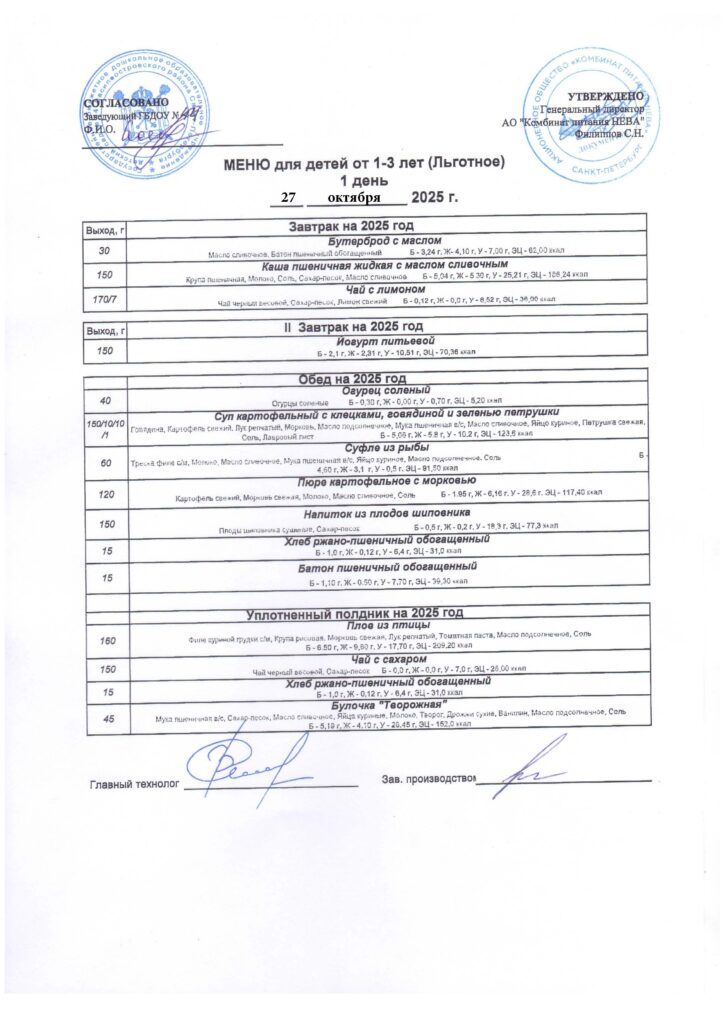 СОГЛАСОВАНО
Заведующий ГБДОУ №
Ф.И.О.
УТВЕРЖДЕНО
Генеральный директор
АО "Комбинат питания НЕВА"
Филиппов С.Н.
МЕНЮ для детей от 1-3 лет (Льготное)
1 день
27 октября 2025 г.
Выход, г Завтрак на 2025 год
30 Бутерброд с маслом
Масло сливочное, Батон пшеничный обогащенный Б - 3,24 г, Ж- 4,10 г, У - 7,00 г, ЭЦ - 62,00 ккал
150 Каша пшеничная жидкая с маслом сливочным
Крупа пшеничная, Молоко, Соль, Сахар-песок, Масло сливочное Б - 5,04 г, Ж - 5,30 г, У - 25,21 г, ЭЦ - ккал
170/7 Чай с лимоном
Чай черный весовой, Сахар-песок, Лимон свежий Б - 0,12 г, Ж - 0,0 г, У - 8,52 г, ЭЦ - ккал
Выход, г II Завтрак на 2025 год
150 Йогурт питьевой
Б - 2,1 г, Ж - 2,31 г, У - 10,51 г, ЭЦ - 70,36 ккал
Обед на 2025 год
40 Огурец соленый
Огурцы соленые Б - 0,30 г, Ж - 0,00 г, У - 0,70 г, ЭЦ - 5,20 ккал
150/10/10/1 Суп картофельный с клецками, говядиной и зеленью петрушки
Говядина, Картофель свежий, Лук репчатый, Морковь, Масло подсолнечное, Мука пшеничная в/с, Масло сливочное, Яйцо куриное, Петрушка свежая,
Соль, Лавровый лист Б - 5,09 г, Ж - 5,8 г, У - 10,2 г, ЭЦ - 123,6 ккал
60 Суфле из рыбы
Треска филе с/м, Молоко, Масло сливочное, Мука пшеничная в/с, Яйцо куриное, Масло подсолнечное, Соль Б -
4,60 г, Ж - 3,1 г, У - 0,5 г, ЭЦ - 91,50 ккал
120 Пюре картофельное с морковью
Картофель свежий, Морковь свежая, Молоко, Масло сливочное, Соль Б - 1,95 г, Ж - 6,16 г, У - 28,6 г, ЭЦ - 117,40 ккал
150 Напиток из плодов шиповника
Плоды шиповника сушеные, Сахар-песок Б - 0,5 г, Ж - 0,2 г, У - 18,3 г, ЭЦ - 77,3 ккал
15 Хлеб ржано-пшеничный обогащенный
Б - 1,0 г, Ж - 0,12 г, У - 6,4 г, ЭЦ - 31,0 ккал
15 Батон пшеничный обогащенный
Б - 1,10 г, Ж - 0,50 г, У - 7,70 г, ЭЦ - 39,30 ккал
Уплотненный полдник на 2025 год
160 Плов из птицы
Филе куриной грудки с/м, Крупа рисовая, Морковь свежая, Лук репчатый, Томатная паста, Масло подсолнечное, Соль
Б - 6,50 г, Ж - 9,60 г, У - 17,70 г, ЭЦ - 209,20 ккал
150 Чай с сахаром
Чай черный весовой, Сахар-песок Б - 0,0 г, Ж - 0,0 г, У - 7,0 г, ЭЦ - 26,00 ккал
15 Хлеб ржано-пшеничный обогащенный
Б - 1,0 г, Ж - 0,12 г, У - 6,4 г, ЭЦ - 31,0 ккал
45 Булочка "Творожная"
Мука пшеничная в/с, Сахар-песок, Масло сливочное, Яйца куриные, Молоко, Творог, Дрожжи сухие, Ванилин, Масло подсолнечное, Соль
Б - 5,19 г, Ж - 4,10 г, У - 26,45 г, ЭЦ - 152,0 ккал
Главный технолог
Зав. производством